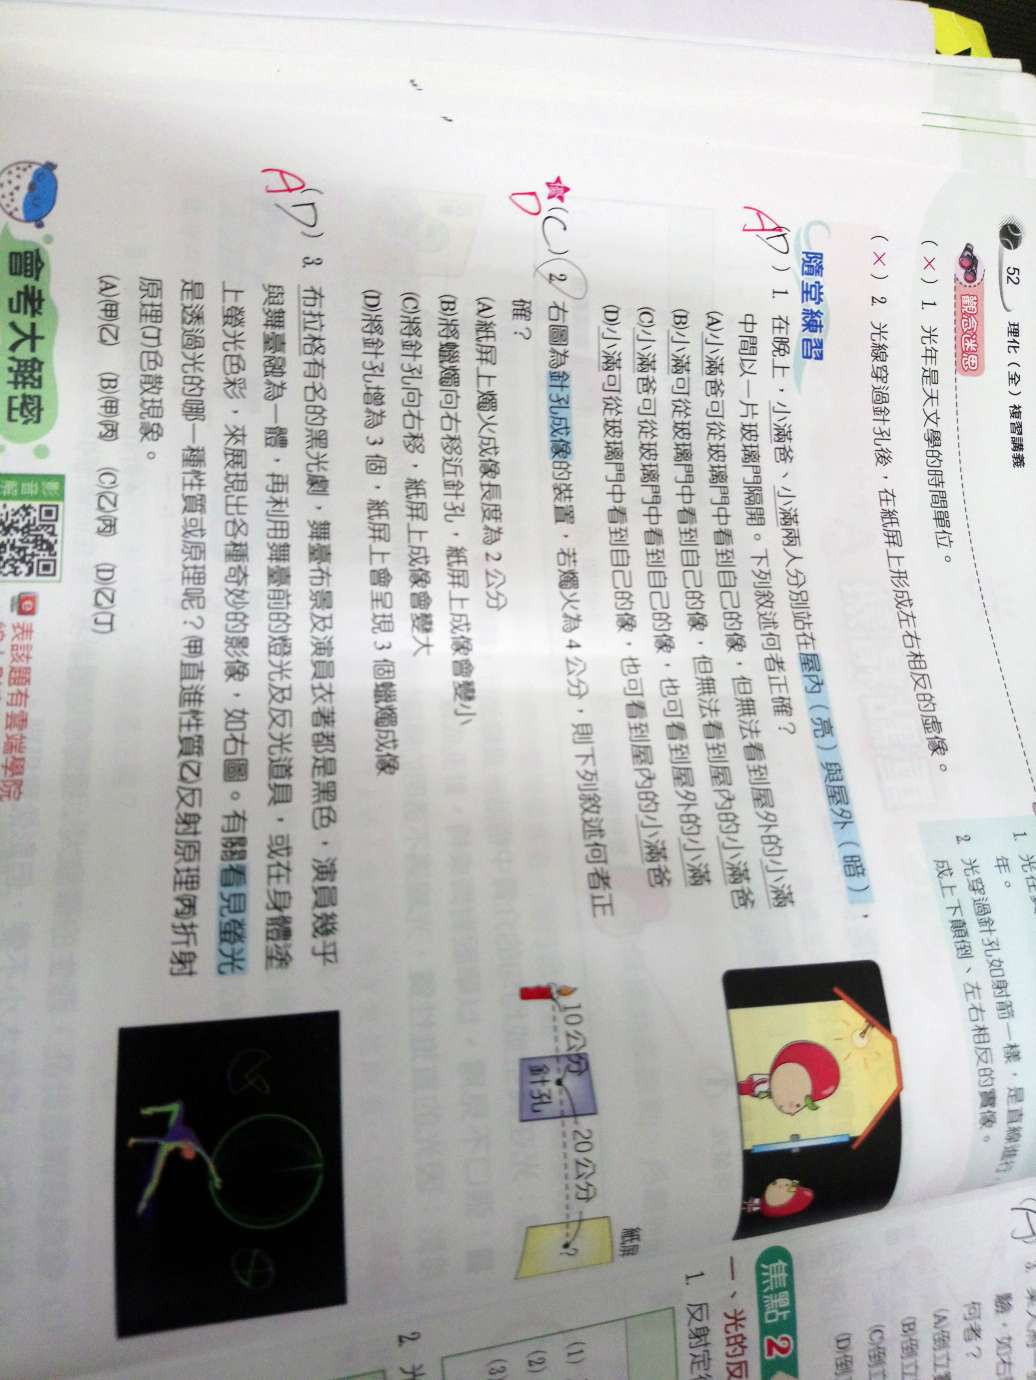 52 理化（全）複習講義
觀念迷思
（×）1. 光年是天文學的時間單位。
（×）2. 光線穿過針孔後，在紙屏上形成左右相反的虛像。
年。
2. 光穿過針孔如射箭一樣，是直線進行，
成上下顛倒、左右相反的實像。
隨堂練習
A
（D）1. 在晚上，小滿爸、小滿兩人分別站在屋內（亮）與屋外（暗），
中間以一片玻璃門隔開。下列敘述何者正確？
(A)小滿爸可從玻璃門中看到自己的像，但無法看到屋外的小滿
(B)小滿可從玻璃門中看到自己的像，但無法看到屋內的小滿爸
(C)小滿爸可從玻璃門中看到自己的像，也可看到屋外的小滿
(D)小滿可從玻璃門中看到自己的像，也可看到屋內的小滿爸
D
（C）2. 右圖為針孔成像的裝置，若燭火為 4 公分，則下列敘述何者正
確？
(A)紙屏上燭火成像長度為 2 公分
(B)將蠟燭向右移近針孔，紙屏上成像會變小
(C)將針孔向右移，紙屏上成像會變大
(D)將針孔增為 3 個，紙屏上會呈現 3 個蠟燭成像
10公分
針孔
20公分
紙屏
?
A
（D）3. 布拉格有名的黑光劇，舞臺布景及演員衣著都是黑色，演員幾乎
與舞臺融為一體，再利用舞臺前的燈光及反光道具，或在身體塗
上螢光色彩，來展現出各種奇妙的影像，如右圖。有關看見螢光
是透過光的哪一種性質或原理呢？(甲)直進性質(乙)反射原理(丙)折射
原理(丁)色散現象。
(A)甲乙 (B)甲丙 (C)乙丙 (D)乙丁
會考大解密
影音解
表該題有雲端學院
焦點 2
一、光的反
1. 反射定
(1)
(2)
(3)
2. 光
驗，如右
何者？
(A)倒立
(B)倒立
(C)倒立
(D)倒